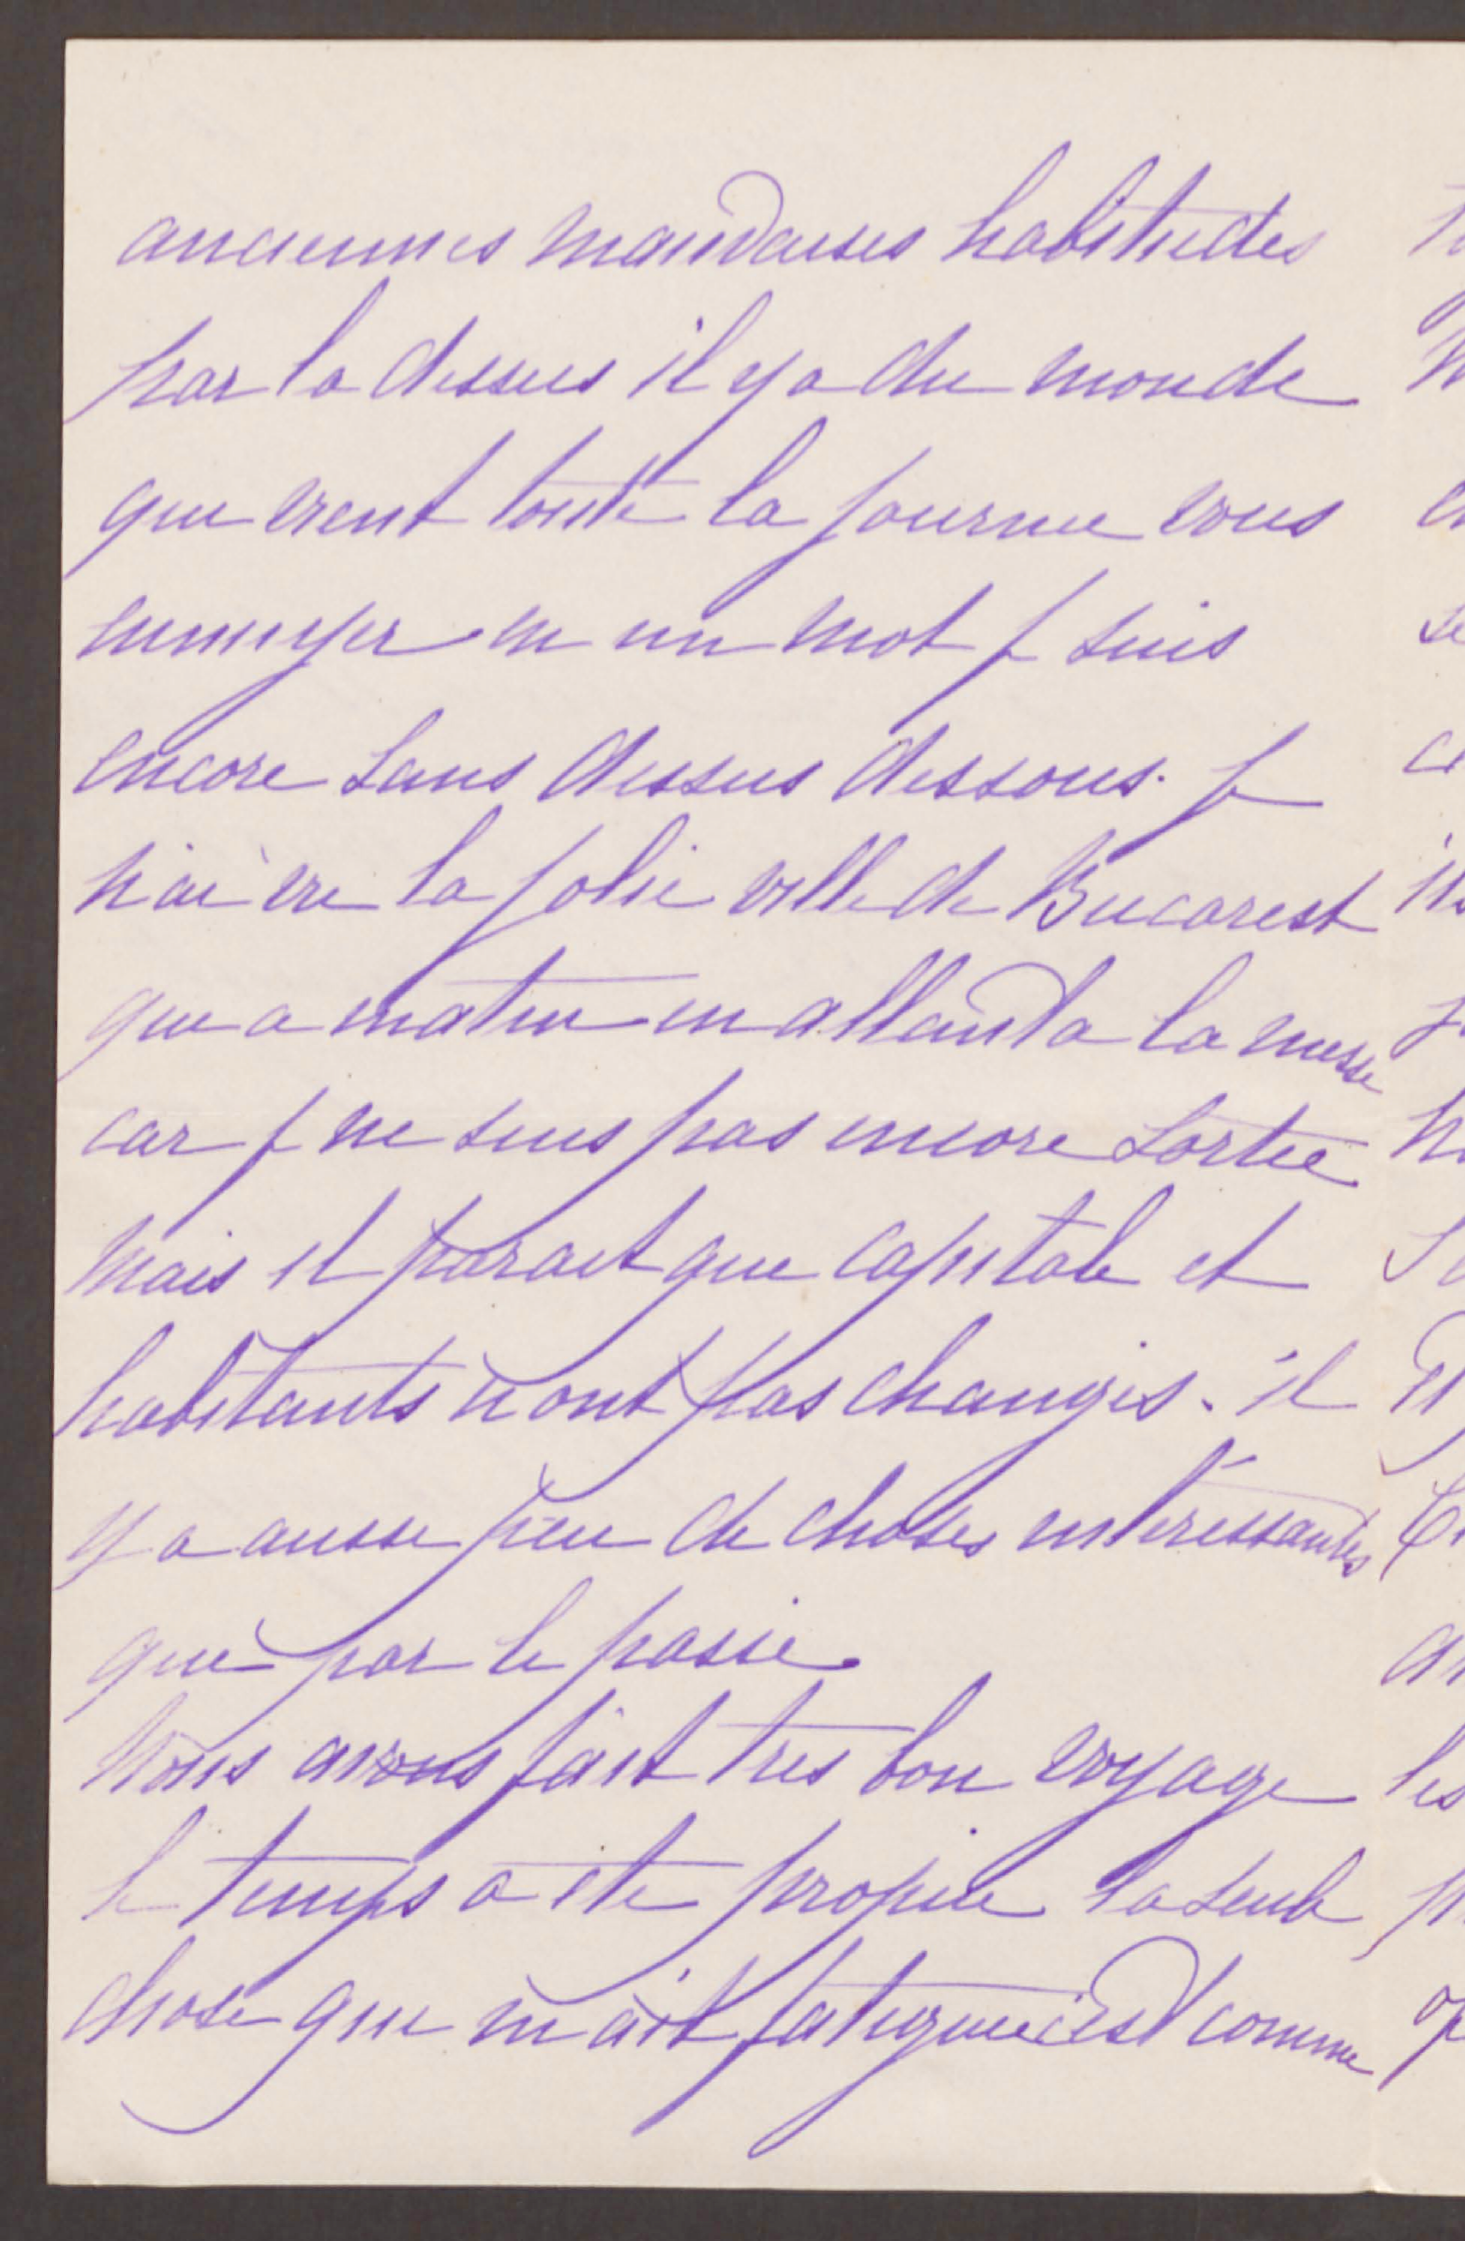 anciennes mauvaises habitudes
par la dessus il y a du monde
qui vient toute la journee vous
ennuyer en un mot je suis
encore sans dessus dessous. je
n'ai vu la jolie ville de Bucarest
que a matin en allant a la messe
car je ne suis pas encore sortie
mais il parait que capitale et
habitants n'ont pas changés. il
y a aussi peu de choses intéressantes
que par le passé.
Nous avons fait tres bon voyage
le temps a ete propice la seule
chose qui m'ait fatiguée c'est comme